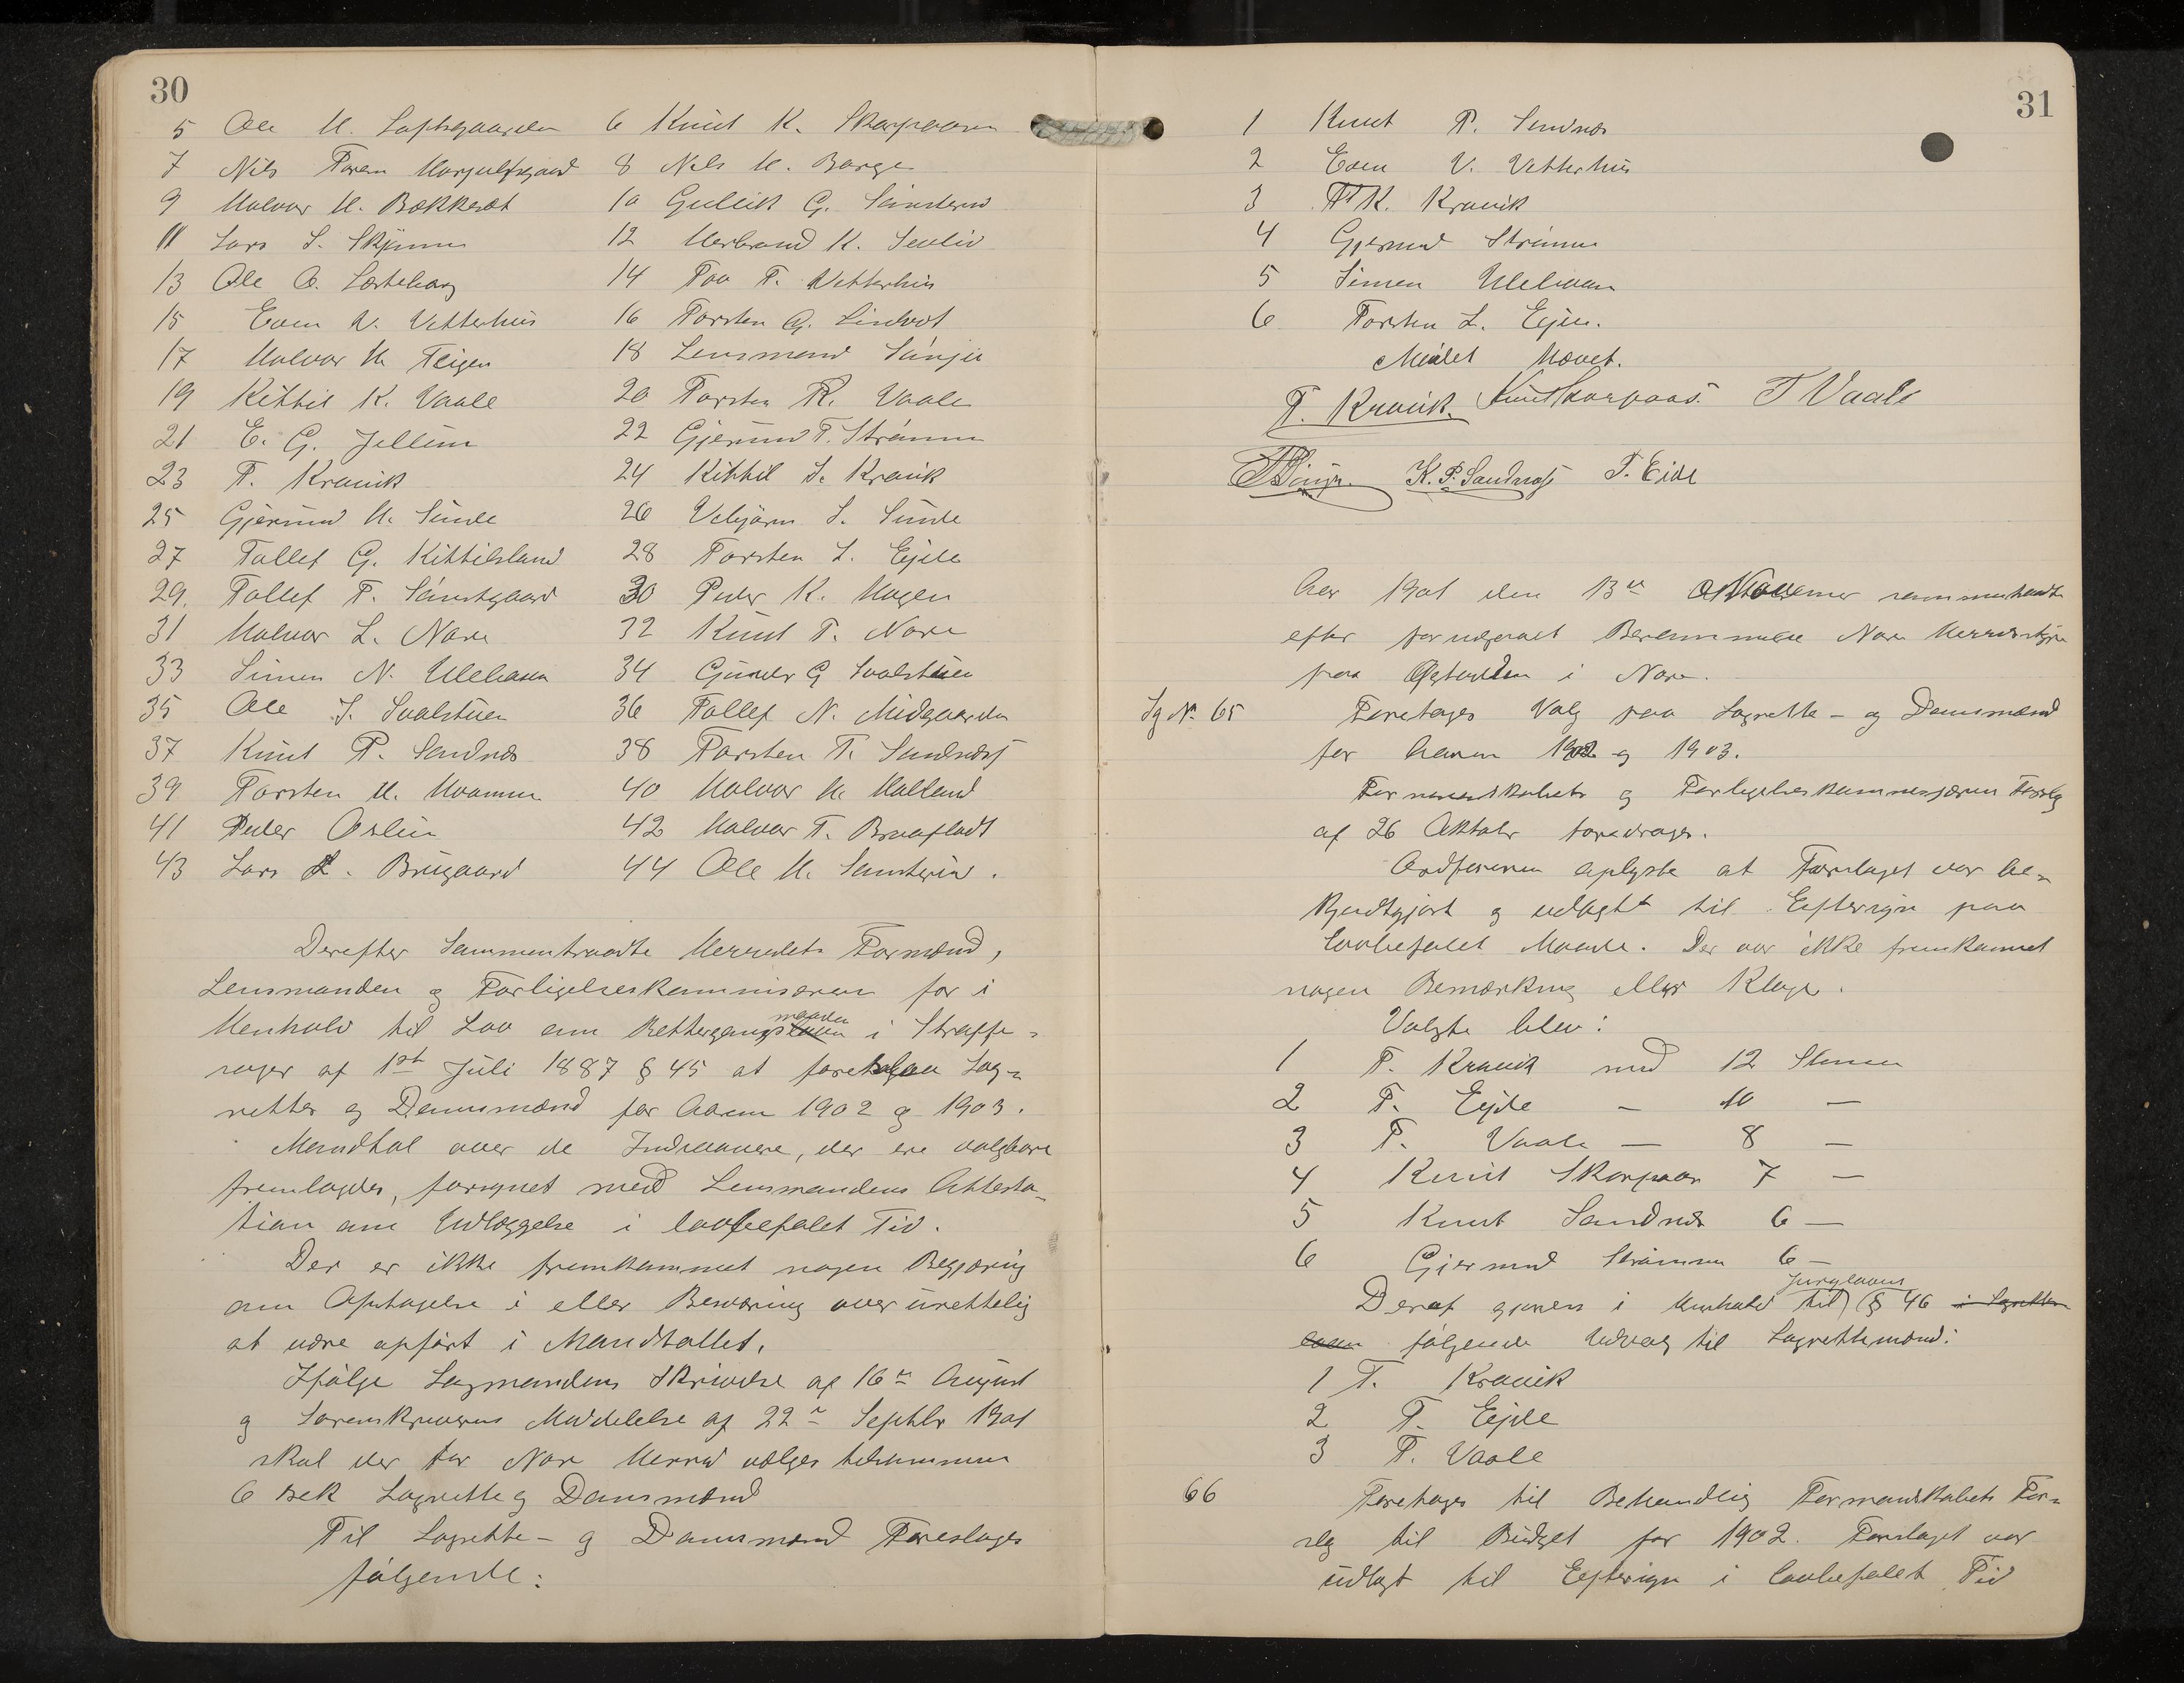 30
5 Ole H. Loftsgaarden 6 Knut K. Skarpaasen
7 Nils Toresen 8 Nils H. Borge
9 Halvor H. Bakkerst 10 Gullik G.
11 Lars L. Skjønne 12 Herbrand K. Senliv
13 Ole O. Lerteberg 14 Tov T. Vetterhus
15 Even V. Vetterhus 16 Torsten G.
17 Halvor H. Teigen 18 Lensmand Sønju
19 Kittil K. Vaale 20 Torsten K. Vaale
21 E. G. Jellum 22 Gjermund T. Strømme
23 T. Kravik 24 Kittil S. Kravik
25 Gjermund H. Sunde 26 Vebjørn S. Sunde
27 Tollef G. Kittilsland 28 Torsten L. Ejde
29. Tollef T. Søndtgaard 30 Peder K. Hagen
31 Halvor L. Nore 32 Knut T. Nore
33 Simen N. Ulehaven 34 Gunder G Svalstuen
35 Ole J. Svalstuen 36 Tollef N. Midgaarden
37 Knut P. Sandnes 38 Torsten T. Sandness
39 Torsten H. Hvammen 40 Halvor H. Halland
41 Peder Oslin 42 Halvor T. Braafladt
43 Lars L. Brugaard 44 Ole H.
Derefter Sammentraadte Herredets Formænd,
Lensmanden og Forligelseskommisæren for i
Henhold til Lov om Rettergangsmaaden i Straffe-
sager af 1ste Juli 1887 § 45 at foretage Lag-
rette og Domsmænd for Aaren 1902 og 1903.
Mandtal over de Indvaanere, der ere valgbare
fremlagdes, forsynet med Lensmandens Attesta-
tion om Udlæggelse i lovbefalet Tid.
Der er ikke fremkommet nogen Begjæring
om Optagelse i eller Besværing over urettelig
at være opført i Mandtallet.
Ifølge Lagmandens Skrivelse af 16de August
og Sorenskriverens Meddelelse af 22de Septbr 1901
skal der for Nore Herred vælges tilsammen
6 sex Lagrette og Domsmænd
Til Lagrette- og Domsmænd Foreslages
følgende:
31
1 Knut P. Sandnes
2 Even V. Vetterhus
3 T K. Kravik
4 Gjermund Strømme
5 Simen Ulehaven
6 Torsten L. Ejde.
Mødet Hævet.
T. Kravik. Knut Skarpaas. T Vaale
K. P. Sandness T. Eide
Aar 1901 den 13de sammenkaldt
efter forudgaaet Berammelse Nore Herredstyre
paa i Nore.
Sg No 65 Foretages Valg paa Lagrette- og Domsmænd
for Aaren 1902 og 1903.
Formandskabets og Forligelseskommisæren Forslag
af 26 Oktobr foredroges.
Ordføreren oplyste at Forslaget var be-
kjendtgjort og udlagt til Eftersyn paa
lovbefalet Maade. Der var ikke fremkommet
nogen Bemærkning eller Klage.
Valgte blev:
1 T. Kravik med 12 Stemmer
2 T. Ejde - 10 -
3 T. Vaale - 8 -
4 Knut Skarpaas 7 -
5 Knut Sandnes 6 -
6 Gjermund Strømme 6 -
Deraf gjøres i Henhold til Jurylovens § 46 i Lagretten
loven følgende Udvalg til Lagrettemænd:
1 T. Kravik
2 T. Ejde
3 T. Vaale
66 Foretoges til Behandling Formandskabets For-
slag til Budget for 1902. Forslaget var
udlagt til Eftersyn i lovbefalet Tid